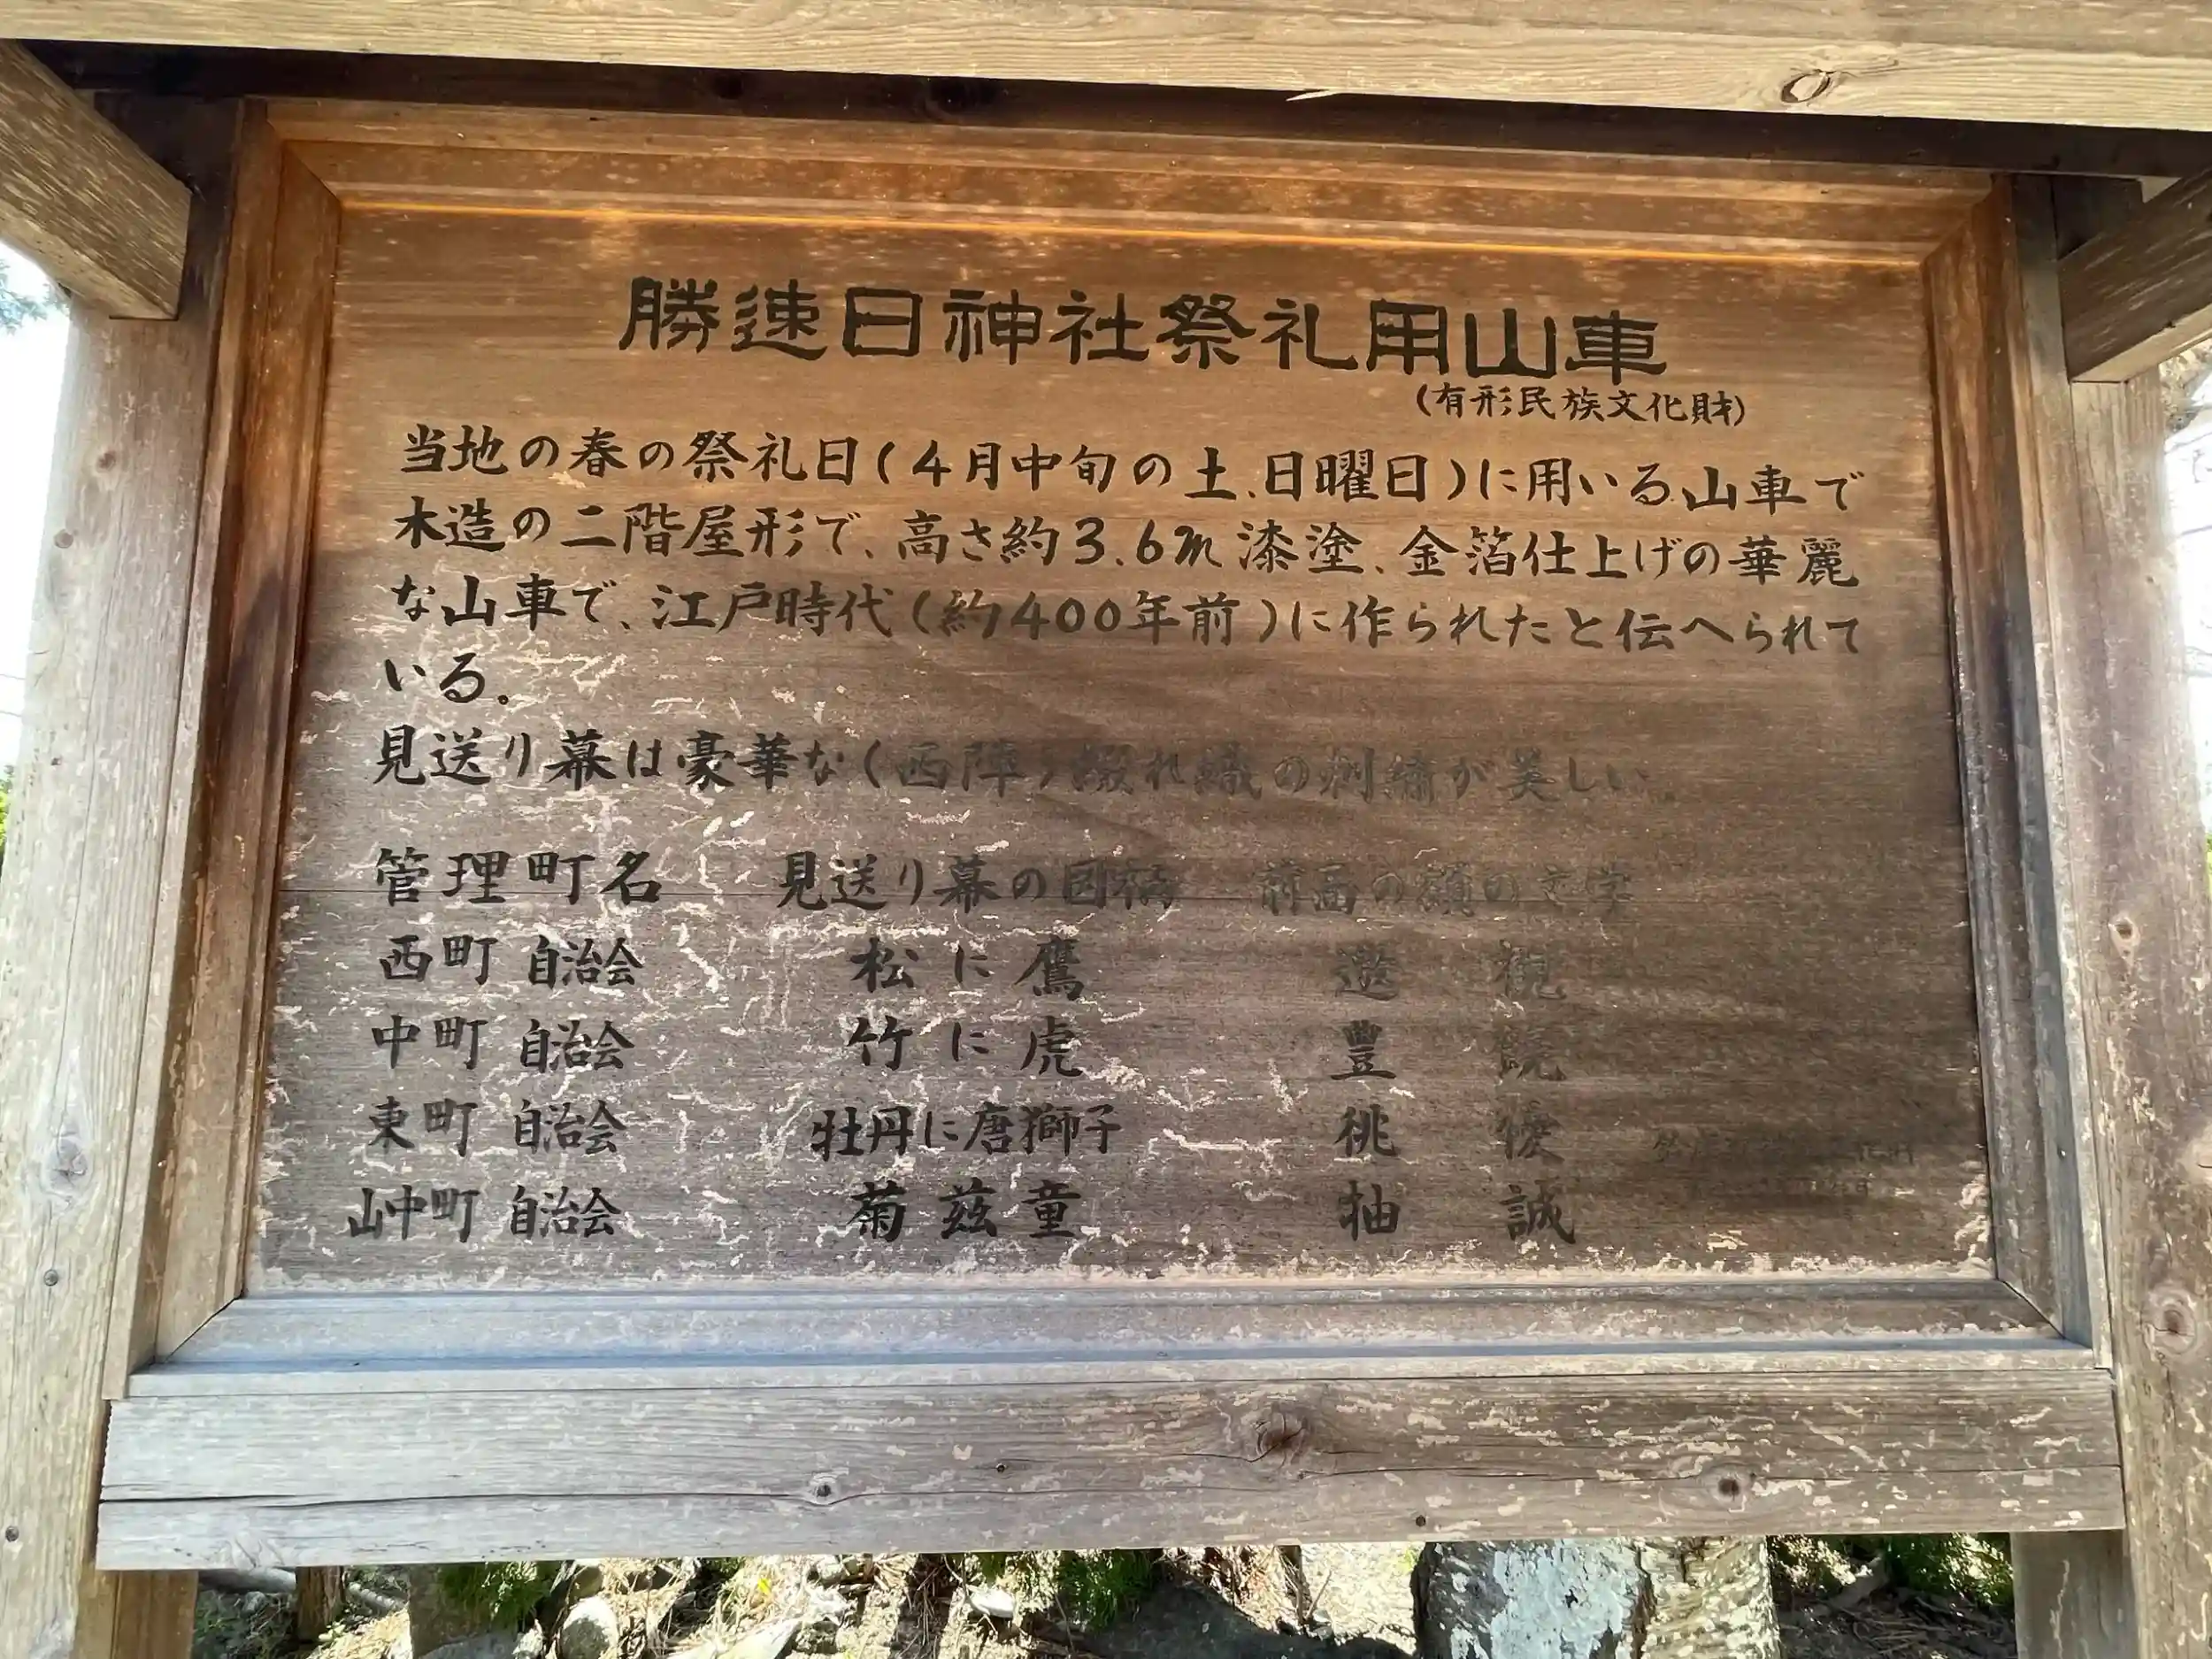 勝速日神社祭礼用山車
(有形民族文化財)
当地の春の祭礼日(4月中旬の土、日曜日)に用いる山車で
木造の二階屋形で、高さ約3.6m漆塗、金箔仕上げの華麗
な山車で、江戸時代(約400年前)に作られたと伝へられて
いる。
見送り幕は豪華な(西陣)綴れ織の刺繍が美しい。
管理町名 見送り幕の図柄 前面の額の文字
西町 自治会 松に鷹 遊 観
中町 自治会 竹に虎 豊
東町 自治会 牡丹に唐獅子 徘
山中町 自治会 菊茲童 抽 誠